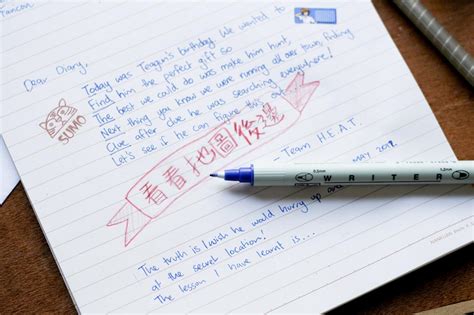 Dear Diary,
Today was Teagyn's birthday. We wanted to
Find him the perfect gift so
The best we could do was make him hunt.
Next thing you know we were running all over town, finding
Clue after clue he was searching everywhere!
Let's see if he can figure this out
SUMO
- Team H.E.A.T.
MAY
看看地圖後邊
WRITER
The truth is I wish he would hurry up and
at the secret location!
The lesson I have learnt is...